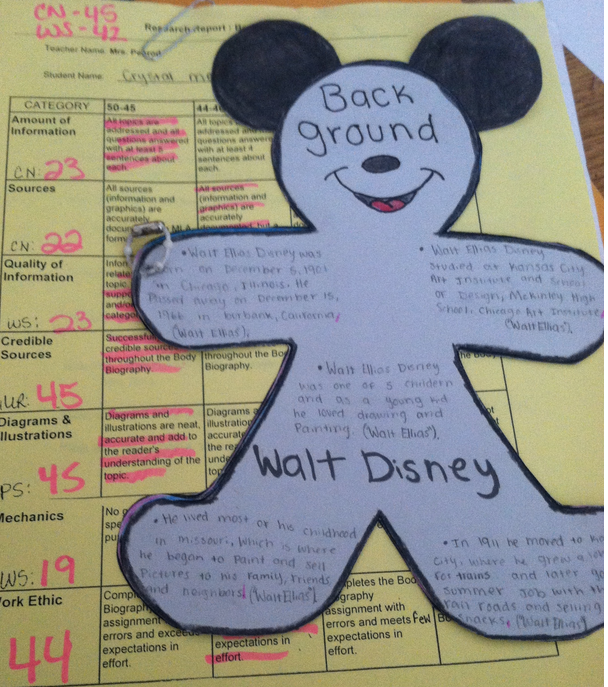 CN-45
WS-42
Research Report :
Teacher Name: Mrs.
Student Name: Crystal
CATEGORY 50-45
Amount of Information
CN: 23
All topics are
addressed and all
questions answered
with at least 5
sentences about
each.
All topics
addressed and
questions answered
with at least 4
sentences about
each.
Sources
CN: 22
All sources
(information and
graphics) are
accurately
All sources
(information and
graphics) are
accurately
Quality of
Information
WS: 23
Credible
Sources
45
credible
throughout the Body
Biography.
throughout the
Biography.
Diagrams &
Illustrations
PS: 45
Diagrams and
illustrations are neat,
accurate and add to
the reader's
understanding of the
topic.
Mechanics
WS: 19
No
Work Ethic
44
Biography
assignment
errors and exceeds
expectations in
effort.
expectations in
effort.
completes the
Biography
assignment with
errors and meets few
expectations in
effort.
Back
ground
• Walt Ellas Disney was
born on December 5, 1901
in Chicago, Illinois. He
Passed away on December 15,
1966 in burbank, California,
(Walt Ellas),
• Walt Ellias Disney
Studied at Kansas City
Art Institute and School
of Design, McKinley High
School, Chicago Art Institute,
(Walt Ellias),
• Walt Ellias Disney
was one of 5 childern
and as a young kid
he loved drawing and
Painting. (Walt Ellias),
Walt Disney
• He lived most of his childhood
in missouri, which is where
he began to Paint and sell
Pictures to his family, friends
and neighbors. (Walt Ellias),
• In 1911 he moved to
City, where he grew a
For trains and later
summer Job with the
rail roads and selling
snacks, (Walt Ellias)